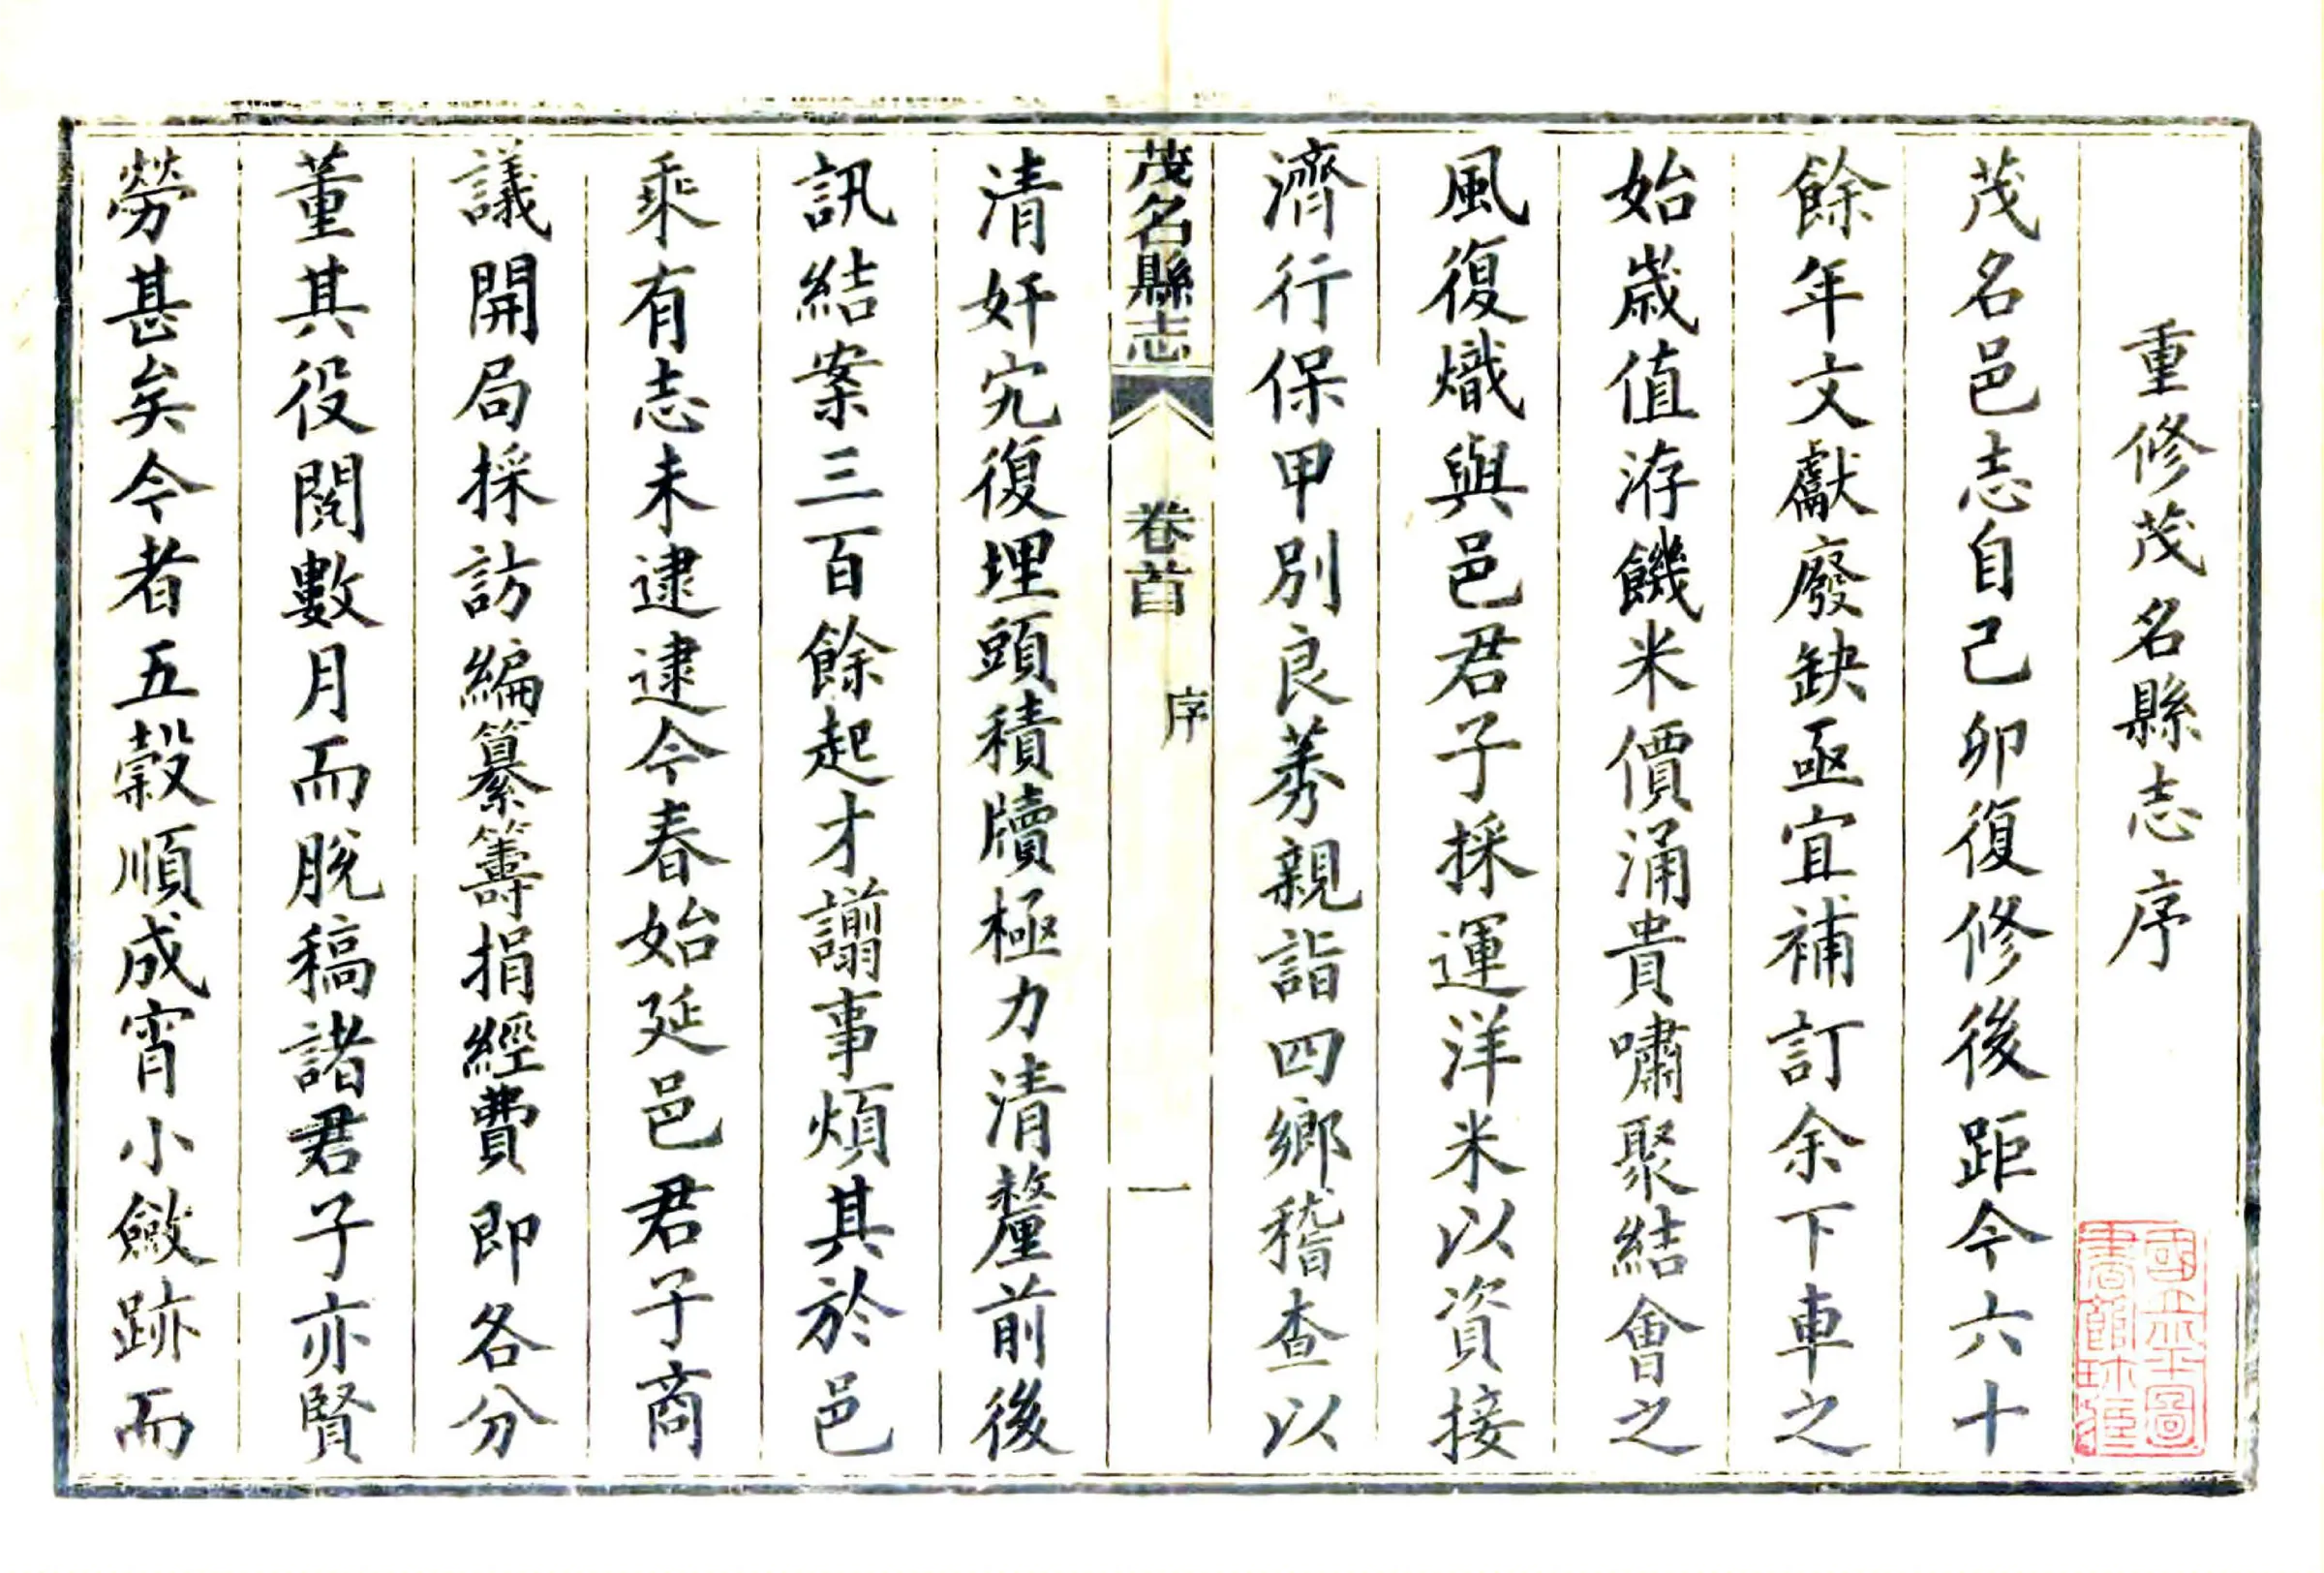 重修茂名縣志序
茂名邑志自己卯復修後距今六十
餘年文獻廢缺亟宜補訂余下車之
始歲值洊饑米價涌貴嘯聚結會之
風復熾與邑君子採運洋米以資接
濟行保甲別良莠親詣四鄉稽查以
茂名縣志
卷首
序
一
清奸宄復埋頭積牘極力清釐前後
訊結案三百餘起才謭事煩其於邑
乘有志未逮逮今春始延邑君子商
議開局採訪編纂籌捐經費即各分
董其役閱數月而脫稿諸君子亦賢
勞甚矣今者五穀順成宵小斂跡而
國立北平圖
書館珍藏